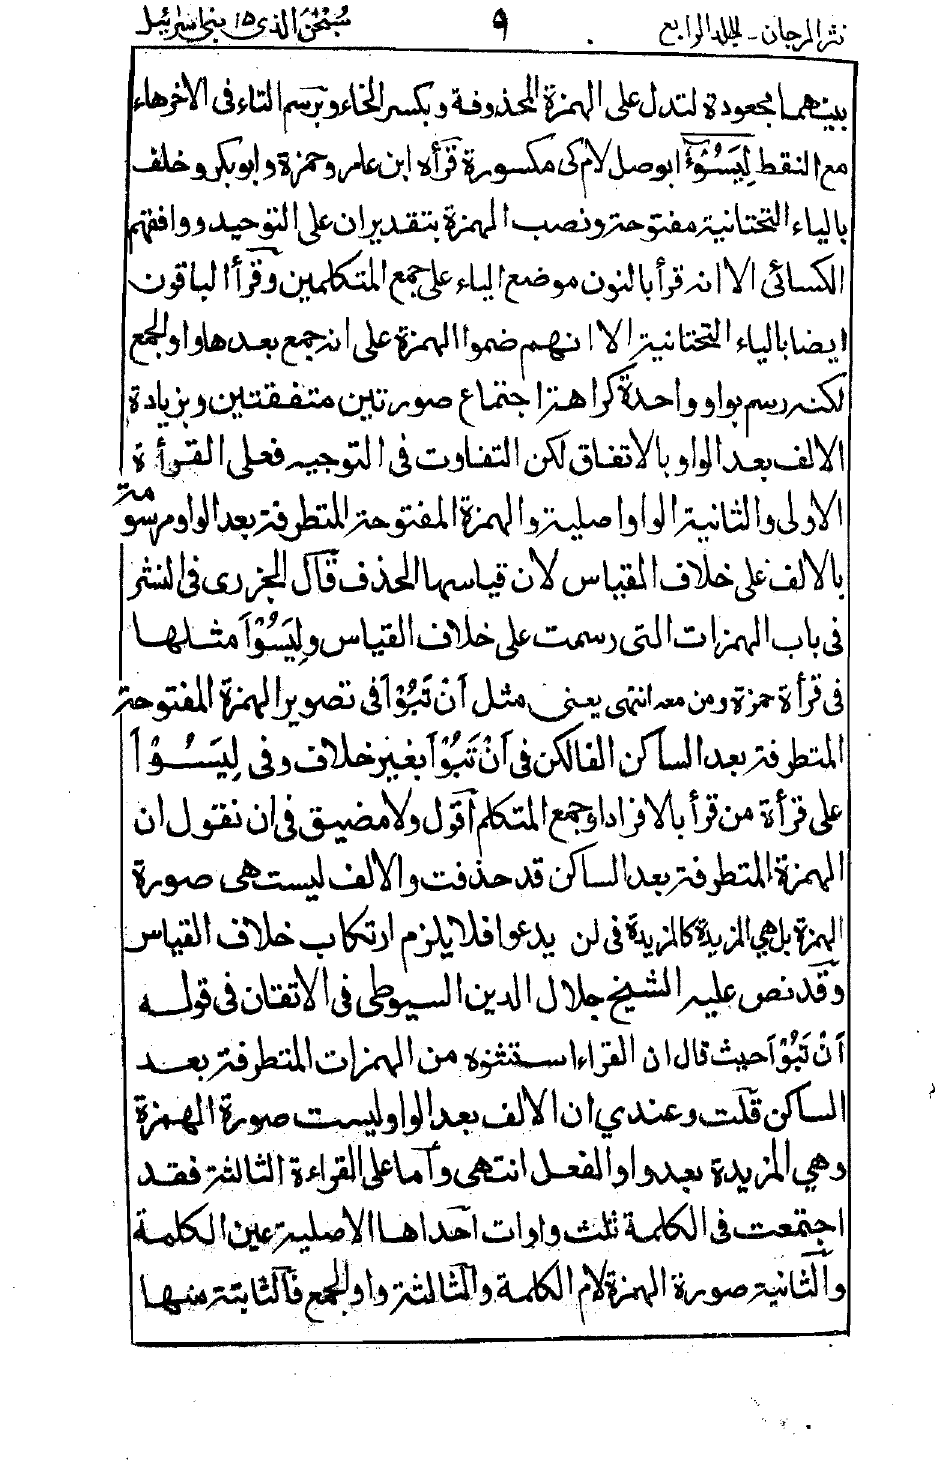 نثر المرجان - المجلد الرابع ٩ سبحٰن الذى ١٥ بنى اسرئيل
بينهما مجعودة لتدل على الهمزة المحذوفة وبكسر الخاء وبرسم التاء فى الآخر هاء
مع النقط لِيَسُـُٔوْا بوصل لام كى مكسورة قرأه ابن عامر وحمزة وابو بكر وخلف
بالياء التحتانية مفتوحة ونصب الهمزة بتقدير ان على التوحيد ووافقهم
الكسائى الا انه قرأ بالنون موضع الياء على جمع المتكلمين وقرأ الباقون
ايضا بالياء التحتانية الا انهم ضموا الهمزة على انه جمع بعدها واو الجمع
لكنه رسم بواو واحدة كراهة اجتماع صورتين متفقتين وبزيادة
الالف بعد الواو بالاتفاق لكن التفاوت فى التوجيه فعلى القرأة
الاولى والثانية الواو اصلية والهمزة المفتوحة المتطرفة بعد الواو مرسومة
بالالف على خلاف القياس لان قياسها الحذف قال الجزرى فى النشر
فى باب الهمزات التى رسمت على خلاف القياس ولِيَسُوْٓاَ مثلها
فى قرأة حمزة ومن معه انتهى يعنى مثل اَنْ تَبُوْٓاَ فى تصوير الهمزة المفتوحة
المتطرفة بعد الساكن الفا لكن فى اَنْ تَبُوْٓاَ بغير خلاف وفى لِيَسُوْٓاَ
على قرأة من قرأ بالافراد او جمع المتكلم اقول ولا مضيق فى ان نقول ان
الهمزة المتطرفة بعد الساكن قد حذفت والالف ليست هى صورة
الهمزة بل هى المزيدة كالمزيدة فى لن يدعوا فلا يلزم ارتكاب خلاف القياس
وقد نص عليه الشيخ جلال الدين السيوطى فى الاتقان فى قوله
اَنْ تَبُوْٓاَ حيث قال ان القراء استثنوه من الهمزات المتطرفة بعد
الساكن قلت وعندي ان الالف بعد الواو ليست صورة الهمزة
وهي المزيدة بعد واو الفعل انتهى وأما على القراءة الثالثة فقد
اجتمعت فى الكلمة ثلث واوات احداها الاصلية عين الكلمة
والثانية صورة الهمزة لام الكلمة والثالثة واو الجمع فالثابتة منها